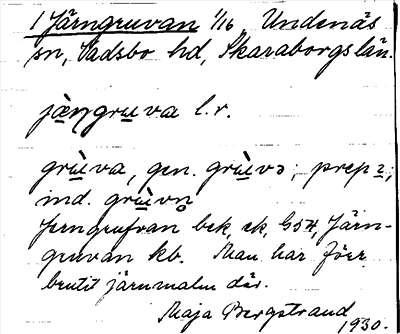 1 Järngruvan 1/16 Undenäs
sn, Vadsbo hd, Skaraborgs län.
jæ̀ŋgruva l. r.
grù̱va, gen. grù̱və; prep 2;
ind. grù̱vn̥
Jerngrufvan bek, ek, GS4, Järn-
gruvan kb. Man har förr
brutit järnmalm där.
Maja Bergstrand
1930.